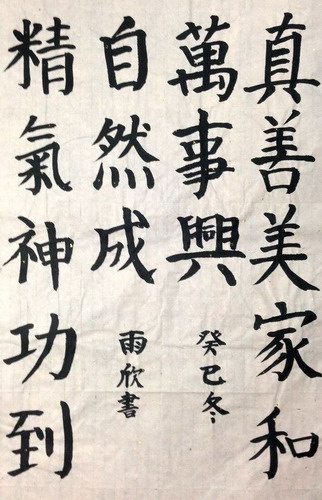 真善美家和
萬事興
癸巳冬
精氣神功到
自然成
雨欣書